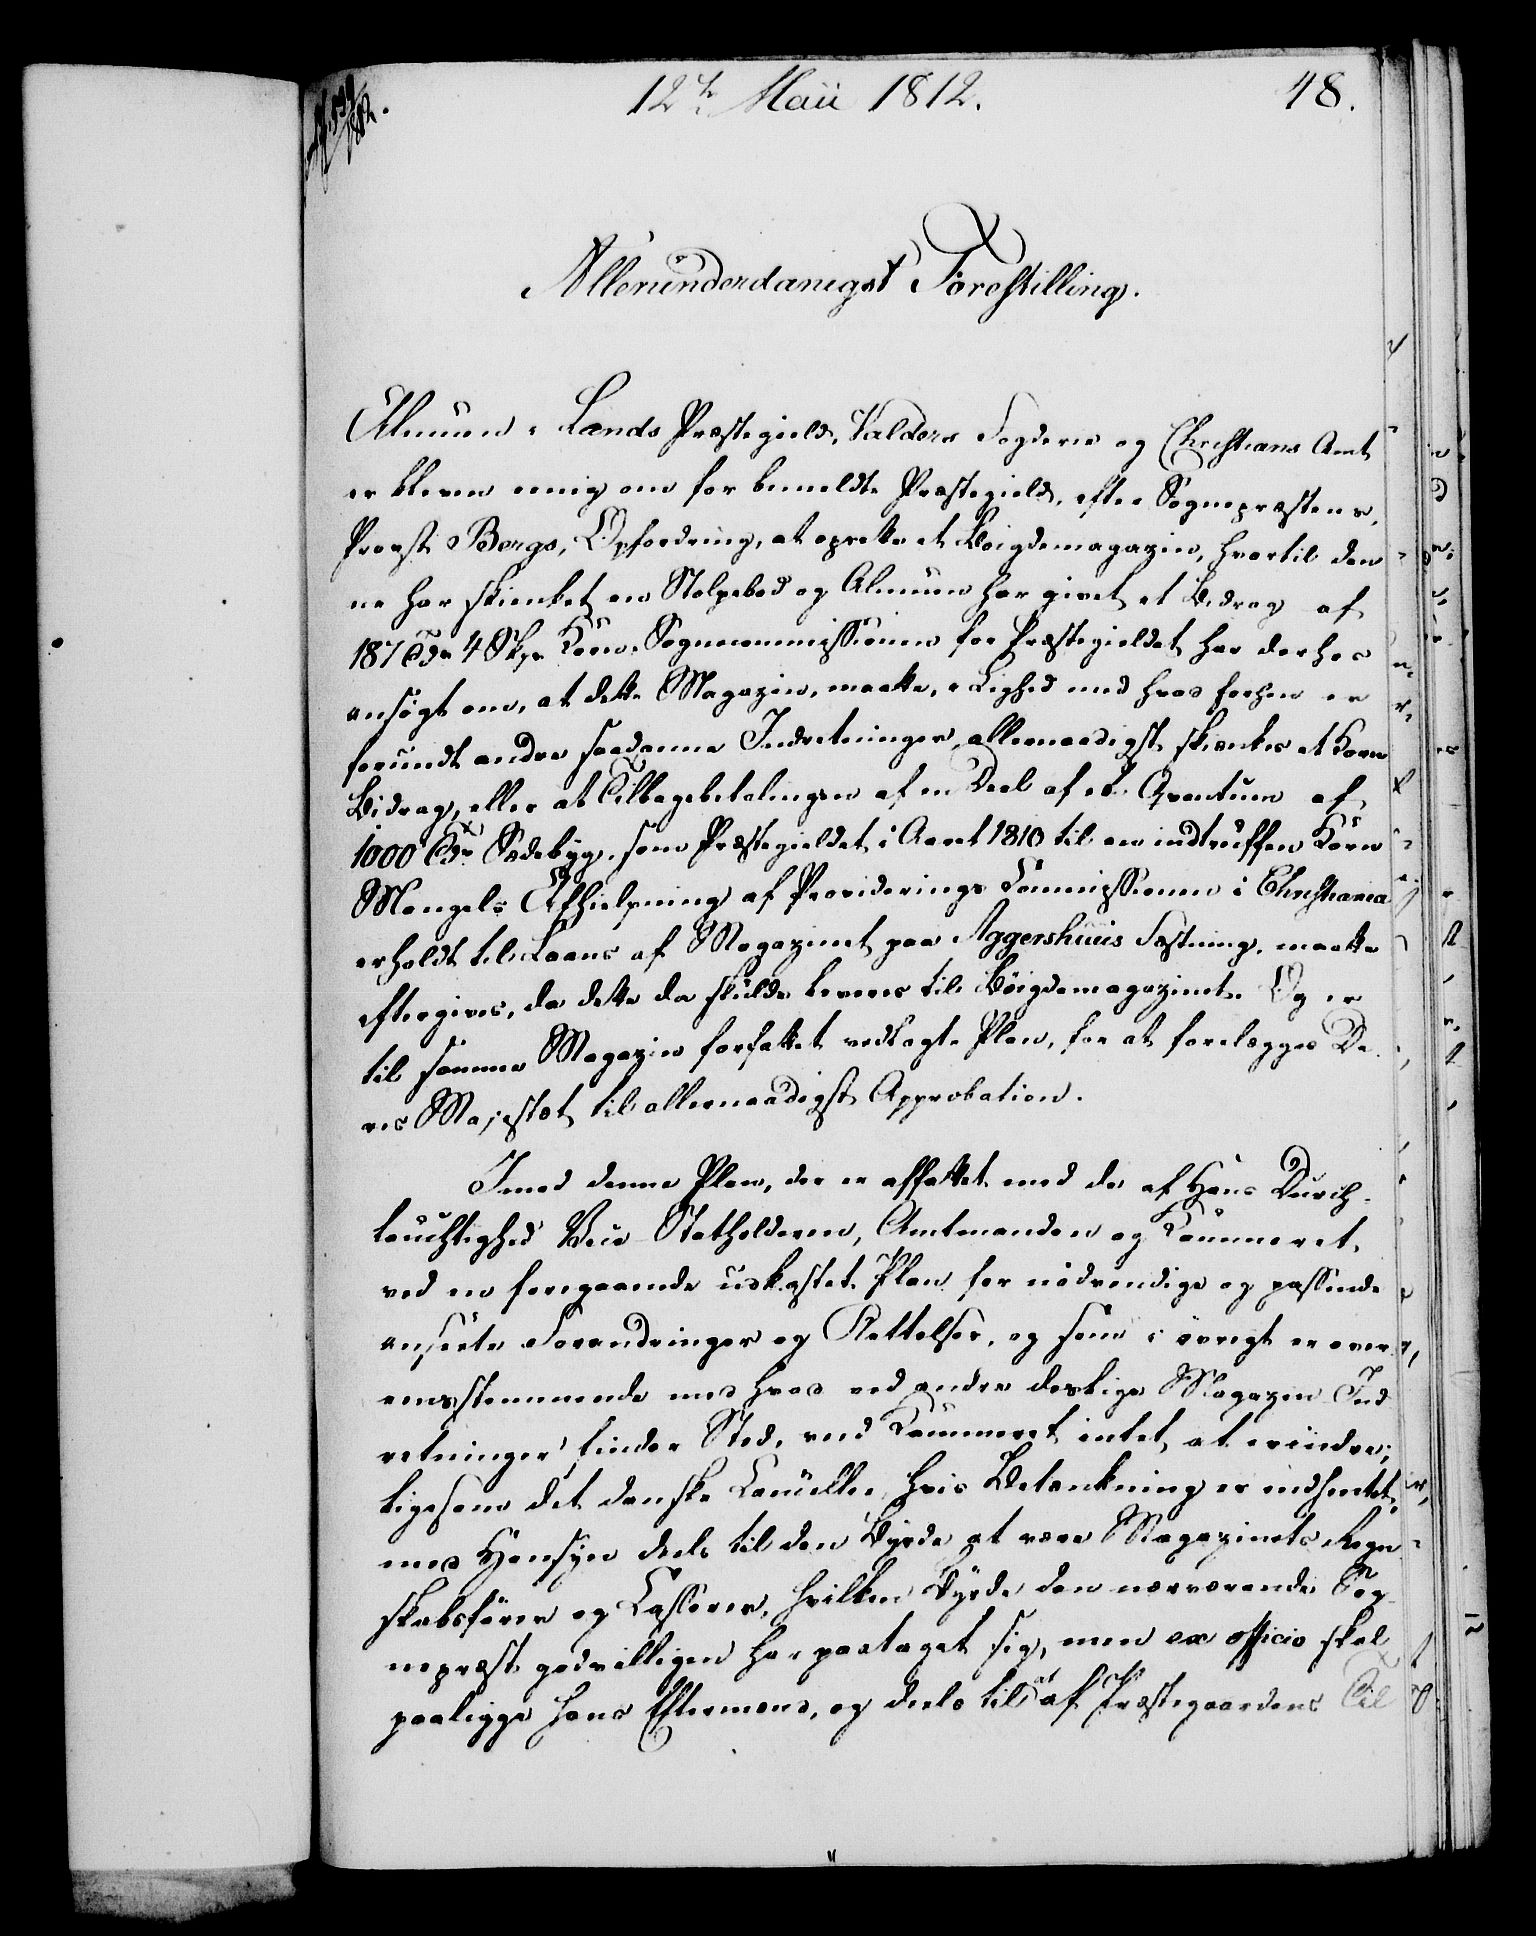 12te Maii 1812.
48.
Allerunderdanigst Forestilling.
Almuen i Lands Præstegield, Valders Fogderie og Christians Amt
er bleven eenig om for bemeldte Præstegield, efter Sognepræstens,
Provst Bergs, Opfordring, at oprette et Bøigdemagazin, hvortil den
ne har skienket en Stolpebod og Almuen har givet et Bidrag af
187 Tdr 4 Skpr Korn. Sognecommissionen for Præstegieldet har derhos
ansøgt om, at dette Magazin, maatte, i Lighed med hvad forhen er
forundt andre saadanne Indretninger, allernaadigst skienkes et Korn
Bidrag, eller at Tilbagebetalingen af en Deel af et Qvantum af
1000 Tdr Sædebyg, som Præstegieldet i Aaret 1810 til en indtruffen Korn
Mangels Afhielpning af Providerings Commissionen i Christiania
erholdt tillaans af Magazinet paa Aggershuus Fæstning, maatte
eftergives, da dette da skulde leveres til Bøigdemagazinet. Og er
til samme Magazin forfattet vedlagte Plan, for at forelægges De
res Majestæt til allernaadigst Approbation.
Imod denne Plan, der er affattet med de af Hans Durch-
lauchtighed Vice-Statholderen, Amtmanden og Kammeret,
ved en foregaaende udkastet Plan for nødvendige og passende
anseete Forandringer og Rettelser, og som i øvrigt er over
eensstemmende med hvad ved andre deslige Magazin Ind
retninger finder Sted, ved Kammeret intet at erindre;
ligesom det danske Cancellie, hvis Betænkning er indhentet,
med Hensyn deels til den Byrde at være Magazinets Regn
skabsfører og Casserer, hvilken Byrde den nærværende Sog-
nepræst godvilligen har paataget sig, men ex officio skal
paaligge hans Eftermænd, og deels til at af Præstegaardens Til